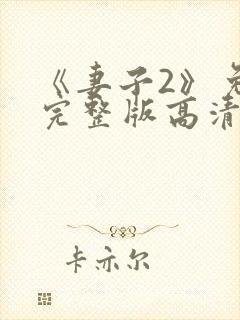 《妻子2》免
完整版高清
卡亦尔